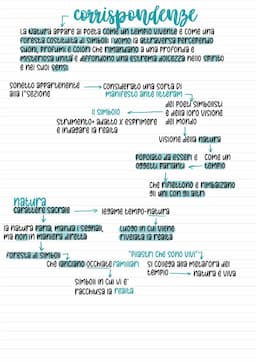 corrispondenze
La natura appare al poeta come un tempio vivente e come una
foresta costituita di simboli: l'uomo la attraversa percependo
suoni, profumi e colori che rimandano a una profonda e
misteriosa unità e diffondono una estrema dolcezza nello spirito
e nei suoi sensi
sonetto appartenente → considerato una sorta di
alla I°sezione manifesto ante litteram
dei poeti simbolisti
il simbolo ← e della loro visione
strumento+ adatto x esprimere del mondo
e indagare la realtà
visione della natura
popolato da esseri e come un
oggetti parlanti ← tempio
che riflettono e rimbalzano
gli uni con gli altri
natura
carattere sacrale → legame tempio-natura
la natura parla, manda i segnali, luogo in cui viene
ma non in maniera diretta rivelata la realtà
foresta di simboli "pilastri che sono vivi"
che lanciano occhiate familiari si collega alla metafora del
tempio → natura è viva
simboli in cui v'è
racchiusa la realtà